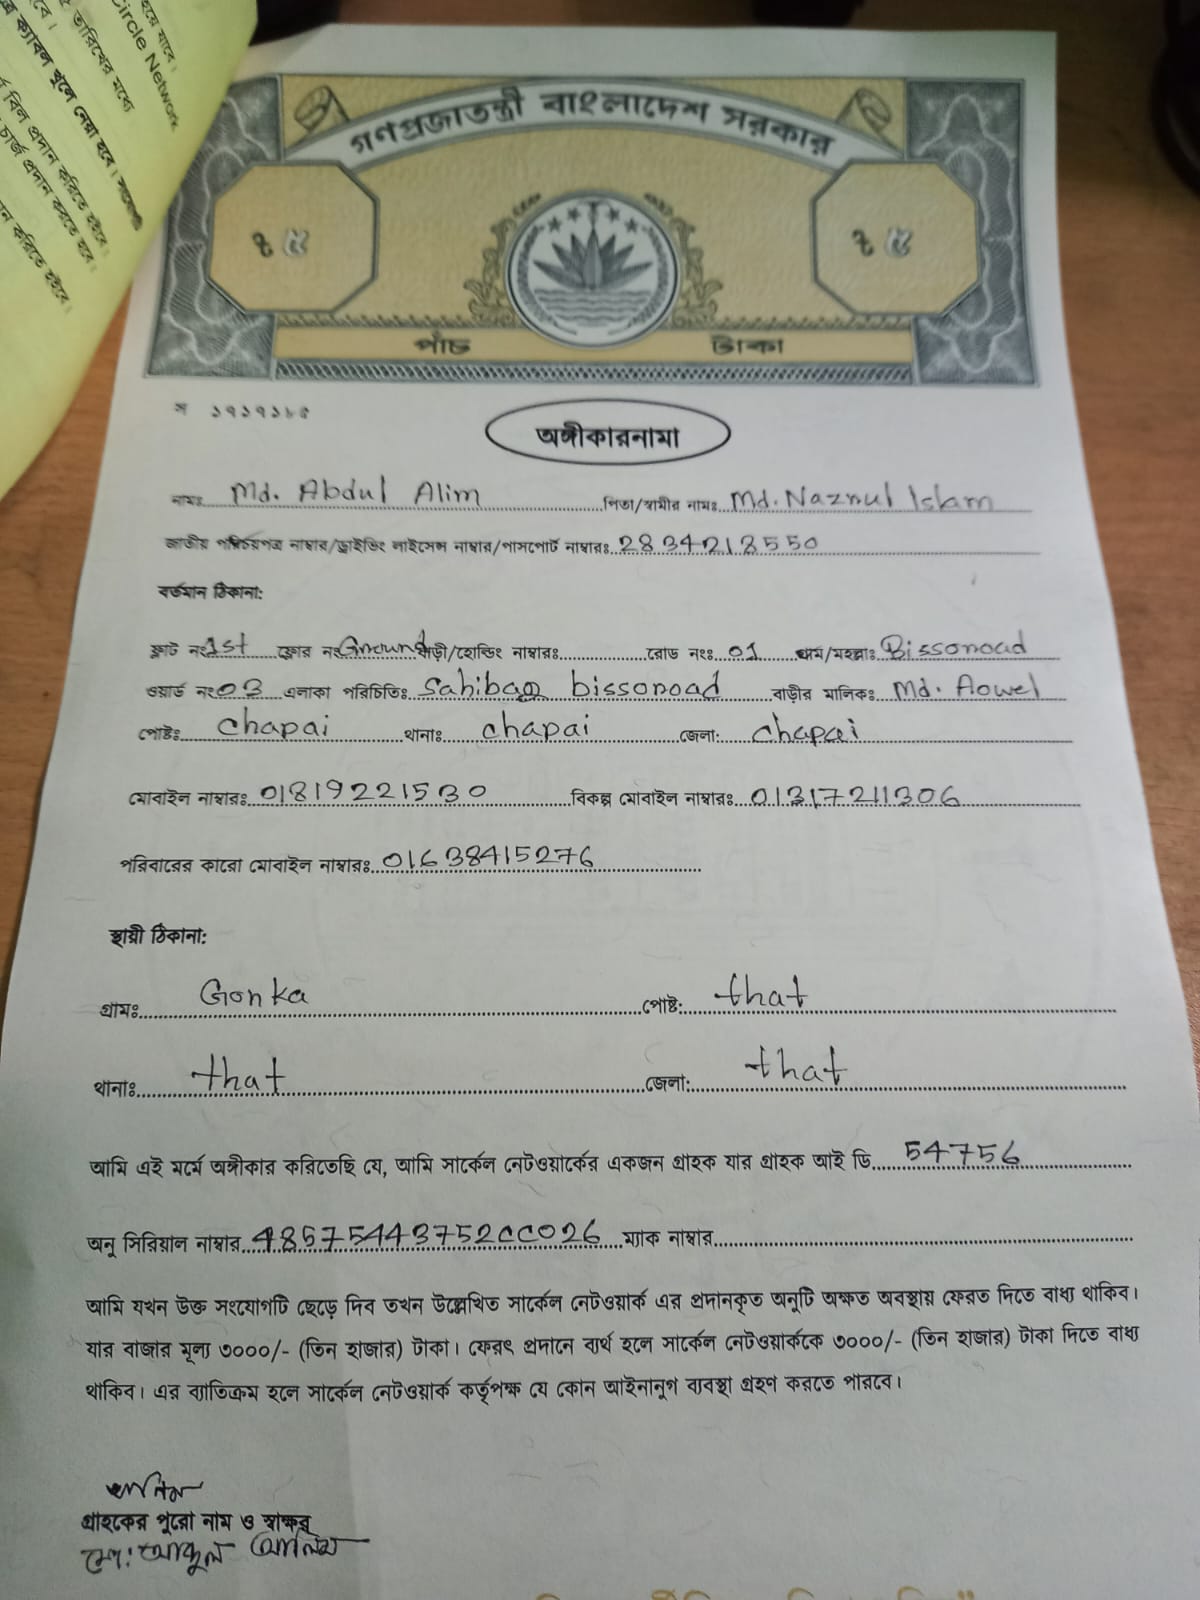 হয়ে যাবে।
Circle Network
তারিখের মধ্যে
ক্যাবল খুলে নেয়া হবে।
বিল প্রদান করিতে হইবে।
চার্জ প্রদান করতে হবে।
করিতে হইবে।
গণপ্রজাতন্ত্রী বাংলাদেশ সরকার
৳ ৫ ৳ ৫
পাঁচ টাকা
১৭১৭১৮৫
অঙ্গীকারনামা
নামঃ Md. Abdul Alim পিতা/স্বামীর নামঃ Md. Nazrul Islam
জাতীয় পরিচয়পত্র নাম্বার/ড্রাইভিং লাইসেন্স নাম্বার/পাসপোর্ট নাম্বারঃ 2834218550
বর্তমান ঠিকানা:
ফ্লাট নং 1st ফ্লোর নং Ground বাড়ী/হোল্ডিং নাম্বারঃ রোড নংঃ 01 গ্রাম/মহল্লাঃ Bissoroad
ওয়ার্ড নং 03 এলাকা পরিচিতিঃ Sahibag bissoroad বাড়ীর মালিকঃ Md. Aowel
পোষ্টঃ chapai থানাঃ chapai জেলা: chapai
মোবাইল নাম্বারঃ 01819221530 বিকল্প মোবাইল নাম্বারঃ 01317211306
পরিবারের কারো মোবাইল নাম্বারঃ 01638415276
স্থায়ী ঠিকানা:
গ্রামঃ Gonka পোষ্ট: that
থানাঃ that জেলা: that
আমি এই মর্মে অঙ্গীকার করিতেছি যে, আমি সার্কেল নেটওয়ার্কের একজন গ্রাহক যার গ্রাহক আই ডি 54756
অনু সিরিয়াল নাম্বার 48575443752CC026 ম্যাক নাম্বার
আমি যখন উক্ত সংযোগটি ছেড়ে দিব তখন উল্লেখিত সার্কেল নেটওয়ার্ক এর প্রদানকৃত অনুটি অক্ষত অবস্থায় ফেরত দিতে বাধ্য থাকিব।
যার বাজার মূল্য ৩০০০/- (তিন হাজার) টাকা। ফেরৎ প্রদানে ব্যর্থ হলে সার্কেল নেটওয়ার্ককে ৩০০০/- (তিন হাজার) টাকা দিতে বাধ্য
থাকিব। এর ব্যতিক্রম হলে সার্কেল নেটওয়ার্ক কর্তৃপক্ষ যে কোন আইনানুগ ব্যবস্থা গ্রহণ করতে পারবে।
আলিম
গ্রাহকের পুরো নাম ও স্বাক্ষর
মো: আব্দুল আলিম